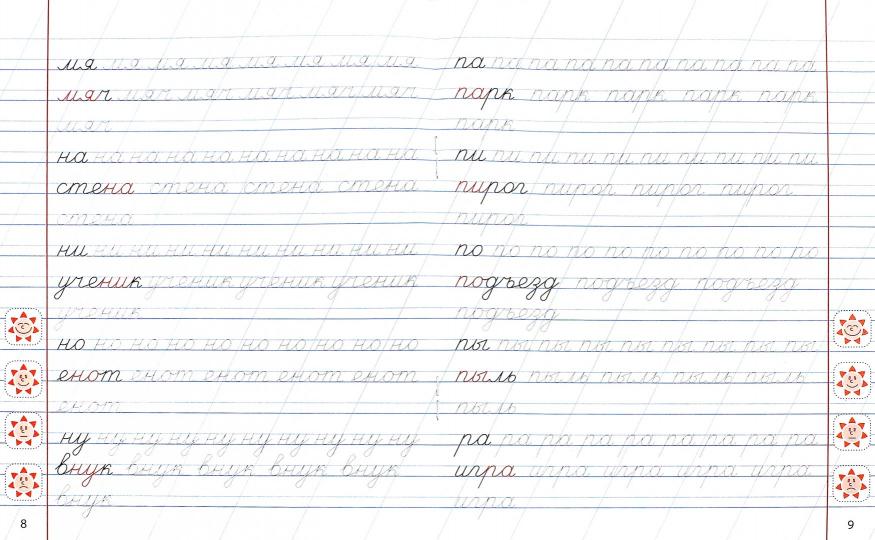 мя мя мя мя мя мя мя мя мя
мяч мяч мяч мяч мяч мяч
мяч
на на на на на на на на на на
стена стена стена стена
стена
ни ни ни ни ни ни ни ни ни ни
ученик ученик ученик ученик
ученик
но но но но но но но но но но
енот енот енот енот енот
енот
ну ну ну ну ну ну ну ну ну ну
внук внук внук внук внук
внук
8
па па па па па па па па па па
парк парк парк парк парк
парк
пи пи пи пи пи пи пи пи пи пи
пирог пирог пирог пирог
пирог
по по по по по по по по по по
подъезд подъезд подъезд
подъезд
пы пы пы пы пы пы пы пы пы
пыль пыль пыль пыль пыль
пыль
ра ра ра ра ра ра ра ра ра ра
игра игра игра игра игра
игра
9